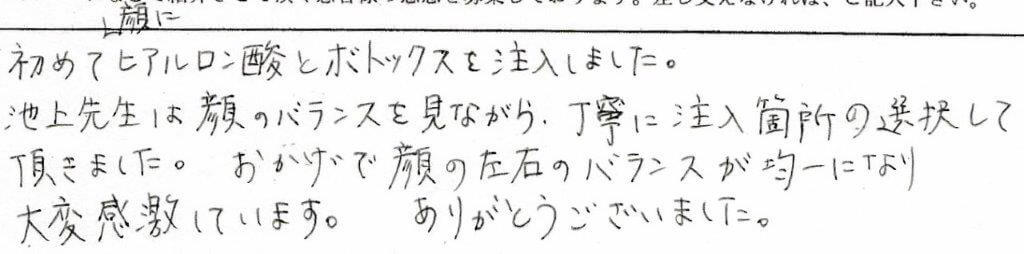 初めて顔にヒアルロン酸とボトックスを注入しました。
池上先生は顔のバランスを見ながら、丁寧に注入箇所の選択して
頂きました。 おかげで顔の左右のバランスが均一になり
大変感激しています。 ありがとうございました。